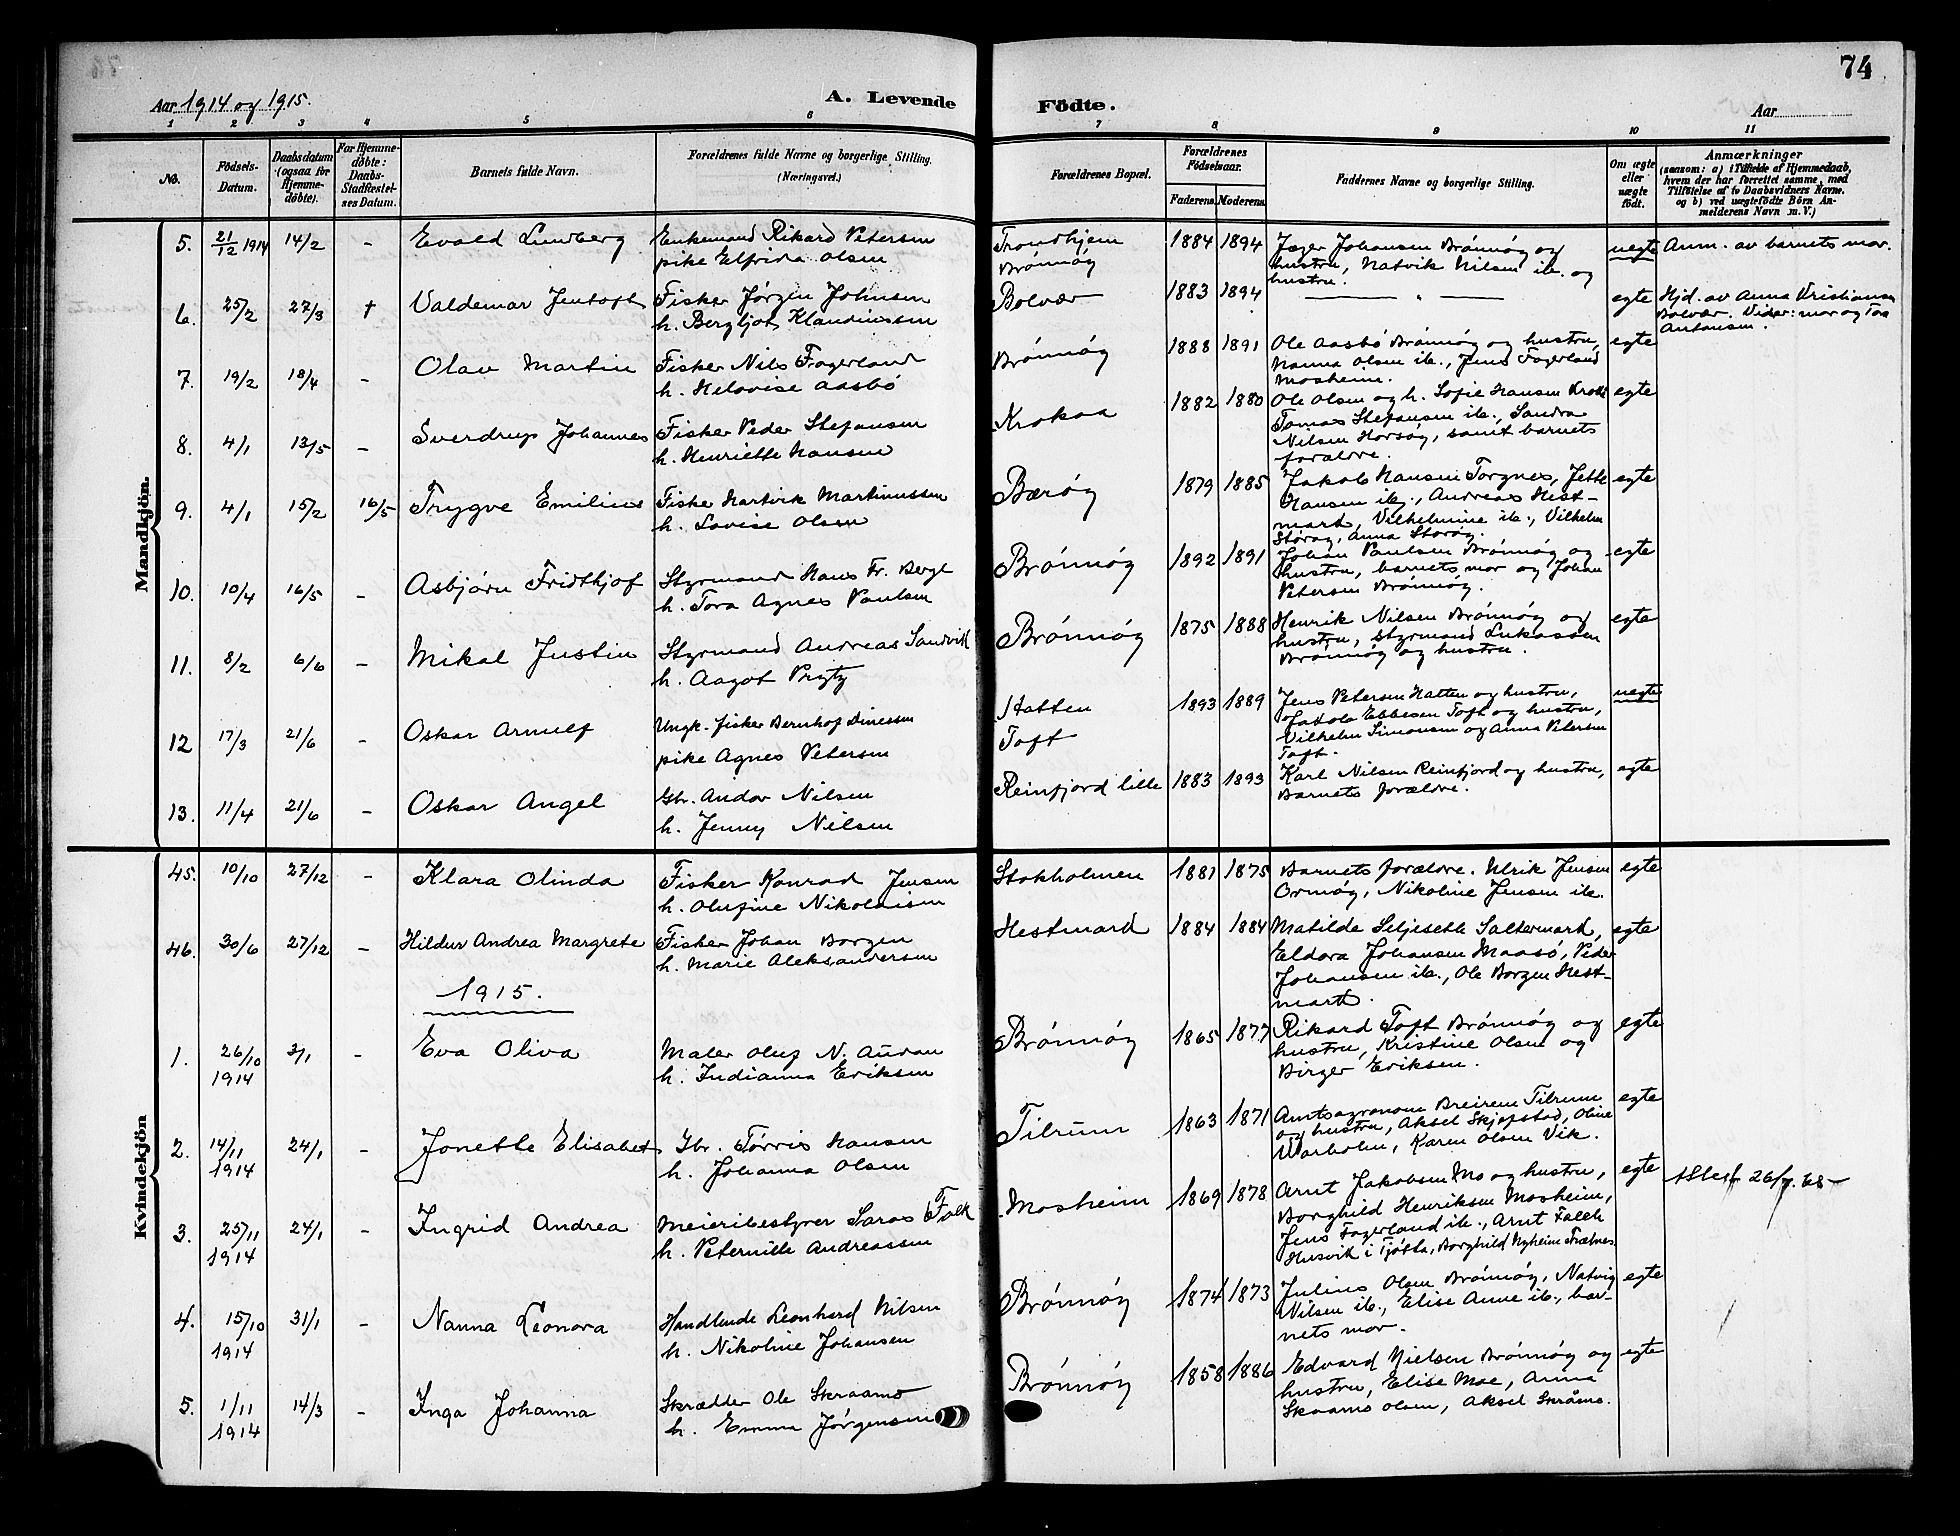 74
Aar 1914 og 1915.
A. Levende Födte.
Aar
1 2 3 4 5 6 7 8 9 10 11
No.
Födsels-Datum.
Daabsdatum (ogsaa for Hjemme-döbte).
For Hjemme-döbte: Daabs-Stadfæstel-ses Datum.
Barnets fulde Navn.
Forældrenes fulde Navne og borgerlige Stilling. (Næringsvei.)
Forældrenes Bopæl.
Forældrenes Födselsaar.
Faderens. Moderens.
Faddernes Navne og borgerlige Stilling.
Om ægte eller uægte födt.
Anmærkninger
(saasom: a) i Tilfælde af Hjemmedaab, hvem der har forrettet samme, med Tilföielse af to Daabsvidners Navne, og b) ved uægtefödte Börn Anmelderens Navn m. V.)
Mandkjön.
5. 21/12 1914 14/2 - Evald Lundberg
Enkemand Rikard Petersen
pike Elfrida Olsen
Trondhjem
Brönnöy
1884 1894
Jæger Johansen Brönnöy og
hustru, Natvik Nilsen ib. og
hustru.
uegte
Anm. av barnets mor.
6. 25/2 27/3 † Valdemar Jentoft
Fisker Jörgen Johnsen
h. Bergljot Klaudiussen
Bolvær
1883 1894
— " —
egte
Hjd. av Anna Kristiansen
Bolvær. Vidner: mor og
Antonsen.
7. 19/2 18/4 - Olav Martin
Fisker Nils Fagerland
h. Helovise Aasbö
Brönnöy
1888 1891
Ole Aasbö Brönnöy og hustru,
Nanna Olsen ib., Jens Fagerland
Mosheim.
egte
8. 4/1 13/5 - Sverdrup Johannes
Fisker Peder Stefansen
h. Henriette Hansen
Krokaa
1882 1880
Ole Olsen og h. Sofie Hansen
Tomas Stefansen ib., Sandra
Nilsen Horsöy, samt barnets
forældre.
egte
9. 4/1 15/2 16/5 Trygve Emilius
Fiske Hartvik Martinussen
h. Lovise Olsen
Bæröy
1879 1885
Jakob Hansen Torgnes, Jette
Hansen ib., Andreas Hest-
mark, Vilhelmine ib., Vilhelm
Storöy, Anna Storöy.
egte
10. 10/4 16/5 - Asbjörn Fridthjof
Styrmand Hans Fr. Bergh
h. Tora Agnes Paulsen
Brönnöy
1892 1891
Johan Paulsen Brönnöy og
hustru, barnets mor og Johan
Petersen Brönnöy.
egte
11. 8/2 6/6 - Mikal Justin
Styrmand Andreas Sandvik
h. Aagot Prytz
Brönnöy
1875 1888
Henrik Nilsen Brönnöy og
hustru, styrmand Lukassen
Brönnöy og hustru.
egte
12 17/3 21/6 - Oskar Arnulf
Ungk. fisker Bernhof Dinessen
pike Agnes Petersen
Hatten
Toft
1893 1889
Jens Petersen Hatten og hustru,
Jakob Ebbesen Toft og hustru,
Vilhelm Simonsen og Anna Petersen
Toft.
uegte
13. 11/4 21/6 - Oskar Angel
Gbr. Andor Nilsen
h. Jenny Nilsen
Reinfjord lille
1883 1893
Karl Nilsen Reinfjord og hustru,
Barnets forældre.
egte
Kvindekjön
45. 10/10 27/12 - Klara Olinda
Fisker Konrad Jensen
h. Olufine Nikolaisen
Stokholmen
1881 1875
Barnets forældre. Ulrik Jensen
Ormöy, Nikoline Jensen ib.
egte
46. 30/6 27/12 - Hildur Andrea Margrete
Fisker Johan Borgen
h. Marie Aleksandersen
Hestmark
1884 1884
Matilde Seljeseth Saltermark,
Eldora Johansen Maasö, Peder
Johansen ib., Ole Borgen Hest-
mark.
egte
1915.
1. 26/10 1914 3/1 - Eva Oliva
Maler Oluf N. Audan
h. Indianna Eriksen
Brönnöy
1865 1877
Rikard Toft Brönnöy og
hustru, Kristine Olsen og
Birger Eriksen.
egte
2. 14/11 1914 24/1 - Jonette Elisabet
Gbr. Törris Hansen
h. Johanna Olsen
Tilrum
1863 1871
Amtsagronom Breirem Tilrum
og hustru, Aksel Skjefstad, Oline
Warholm, Karen Olsen Vik.
egte
3. 25/11 1914 24/1 - Ingrid Andrea
Meieribestyrer Saras Falk
h. Peternille Andreassen
Mosheim
1869 1878
Arnt Jakobsen Mo og hustru,
Borghild Henriksen Mosheim,
Jens Fagerland ib., Arnt Falch
Husvik i Tjötta, Borghild Nyheim
egte
Attest 26/7. 68
4. 15/10 1914 31/1 - Nanna Leonora
Handlende Leonhard Nilsen
h. Nikoline Johansen
Brönnöy
1874 1873
Julius Olsen Brönnöy, Natvig
Nilsen ib., Elise Anne ib., bar-
nets mor.
egte
5. 1/11 1914 14/3 - Inga Johanna
Skrædder Ole Skraamo
h. Emma Jörgensen
Brönnöy
1858 1886
Edvard Nielsen Brönnöy og
hustru, Elise Moe, Anna
Skaamo Olsen, Aksel Skråmo.
egte